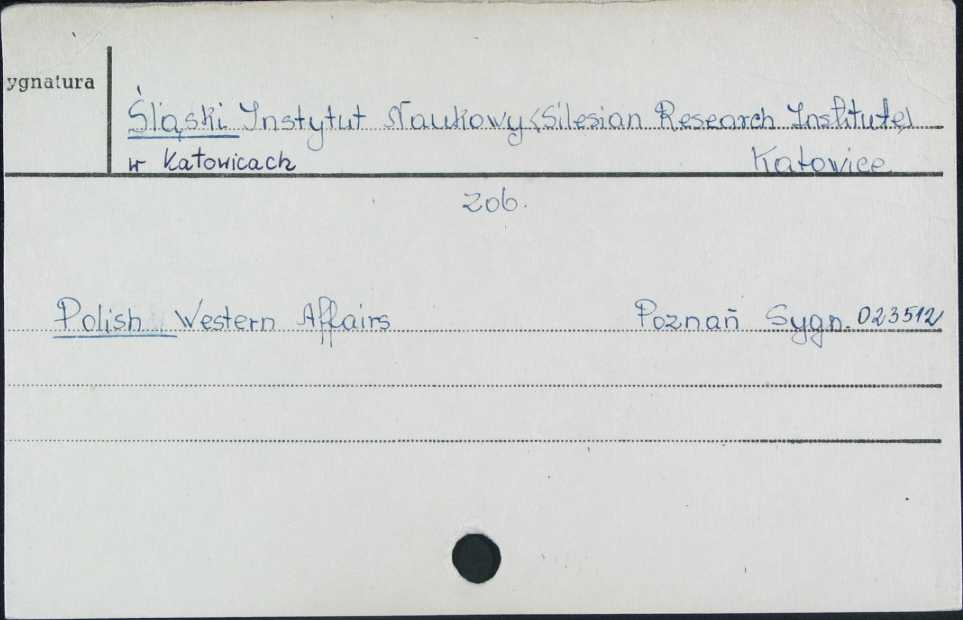 ygnatura
Śląski Instytut Naukowy (Silesian Research Institute)
w Katowicach Katowice
zob.
Polish Western Affairs Poznań Sygn. 023512